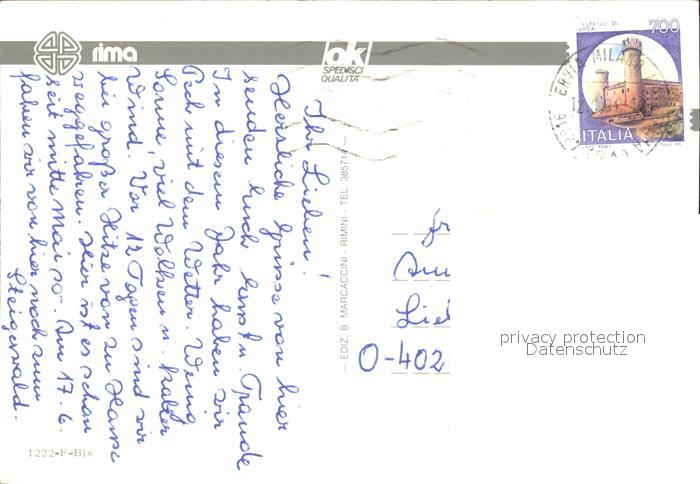 rima
ok
SPEDISCI
QUALITA'
700
ITALIA
Ihr Lieben!
Herzliche Grüsse von hier
senden Euch Kurt u. Traude
In diesem Jahr haben wir
Pech mit dem Wetter. Wenig
Sonne, viel Wolken u. kalter
Wind. Vor 12 Tagen sind wir
bei großer Hitze von zu Hause
weggefahren. Hier ist es schon
seit mitte Mai so. Am 17.6.
fahren wir von hier noch zum
Steigerwald.
— EDIZ. B. MARCACCINI - RIMINI - TEL. 385714 —
O-402
privacy protection
Datenschutz
1222-F-Bis